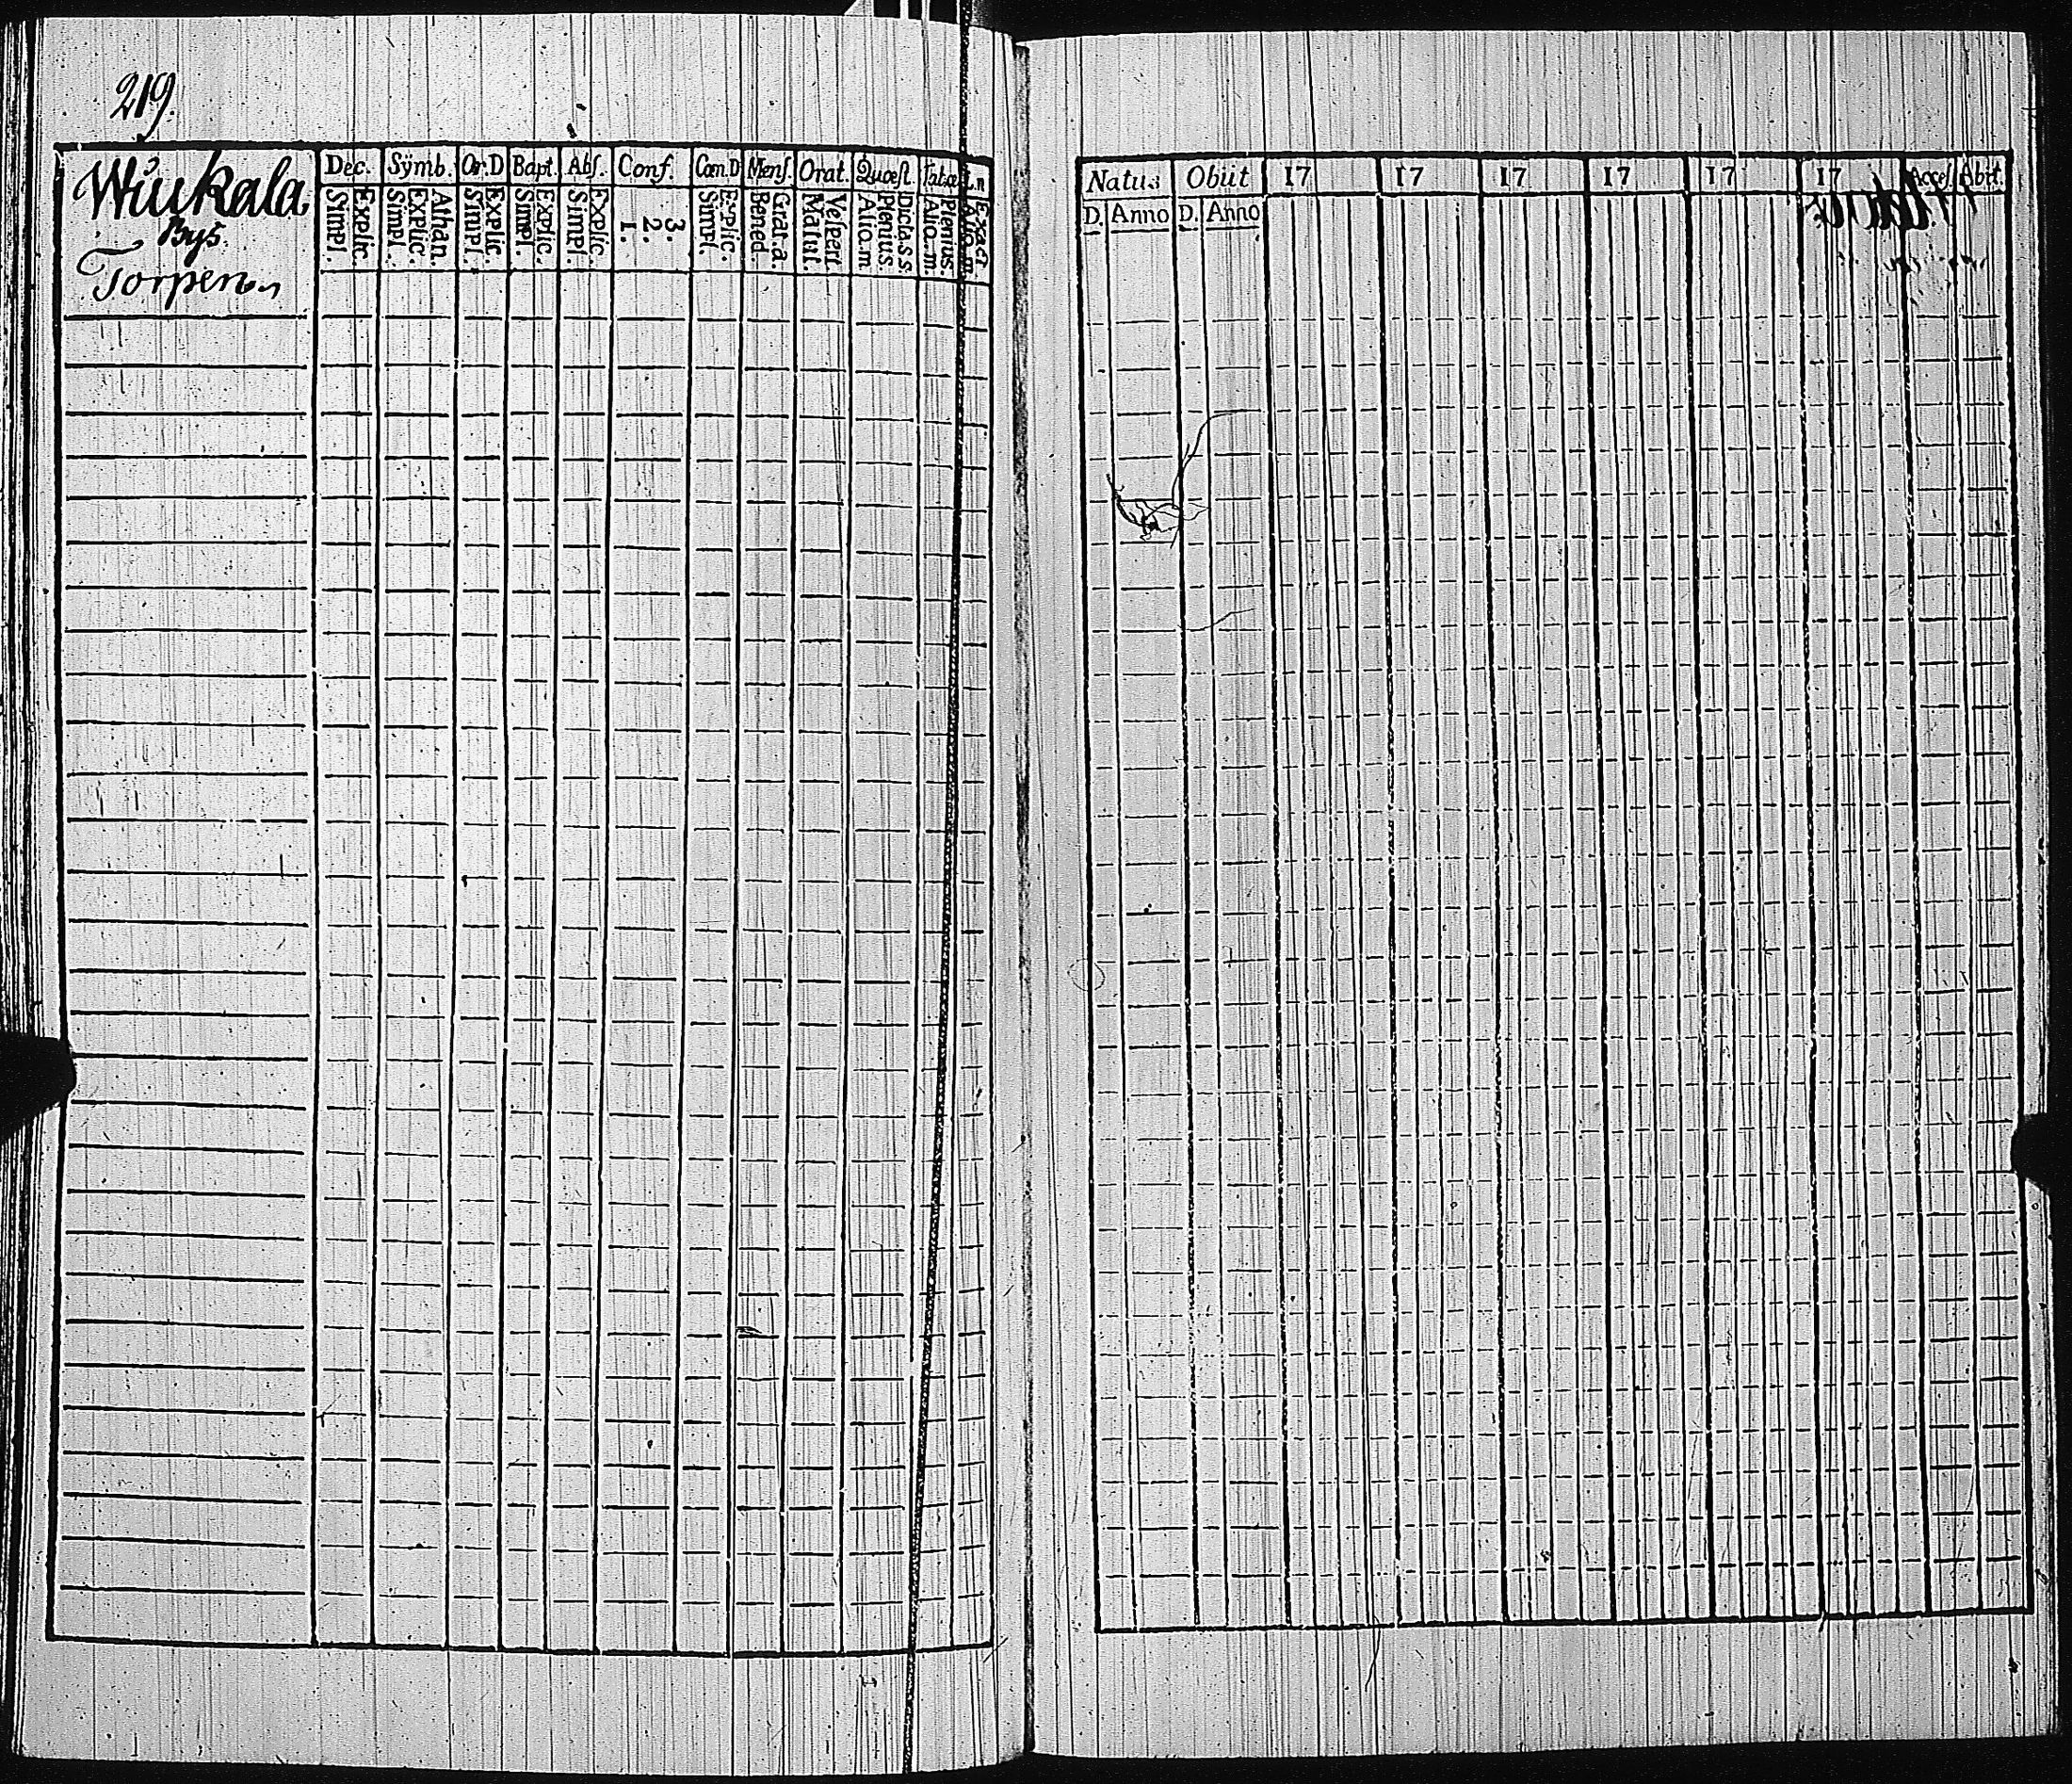 219.
Wiukala
Bys
Torpen
Dec. Sÿmb. Or.D Bapt. Abſ. Conf. Cœn.D Menſ. Orat. Quœſt. Tabœ
Simpl. Explic. Simpl. Explic. Athan. Simpl. Explic. Simpl. Explic. Simpl. Explic. 1. 2. 3. Simpl. Explic. Bened. Grat.a. Matut. Veſpert. Alio.m. Plenius. Dicta.s.s. Alio.m. Plenius. Alio.m. Exact
Natus Obiit 17 17 17 17 17 17 Acceſ. Abit.
D. Anno D. Anno